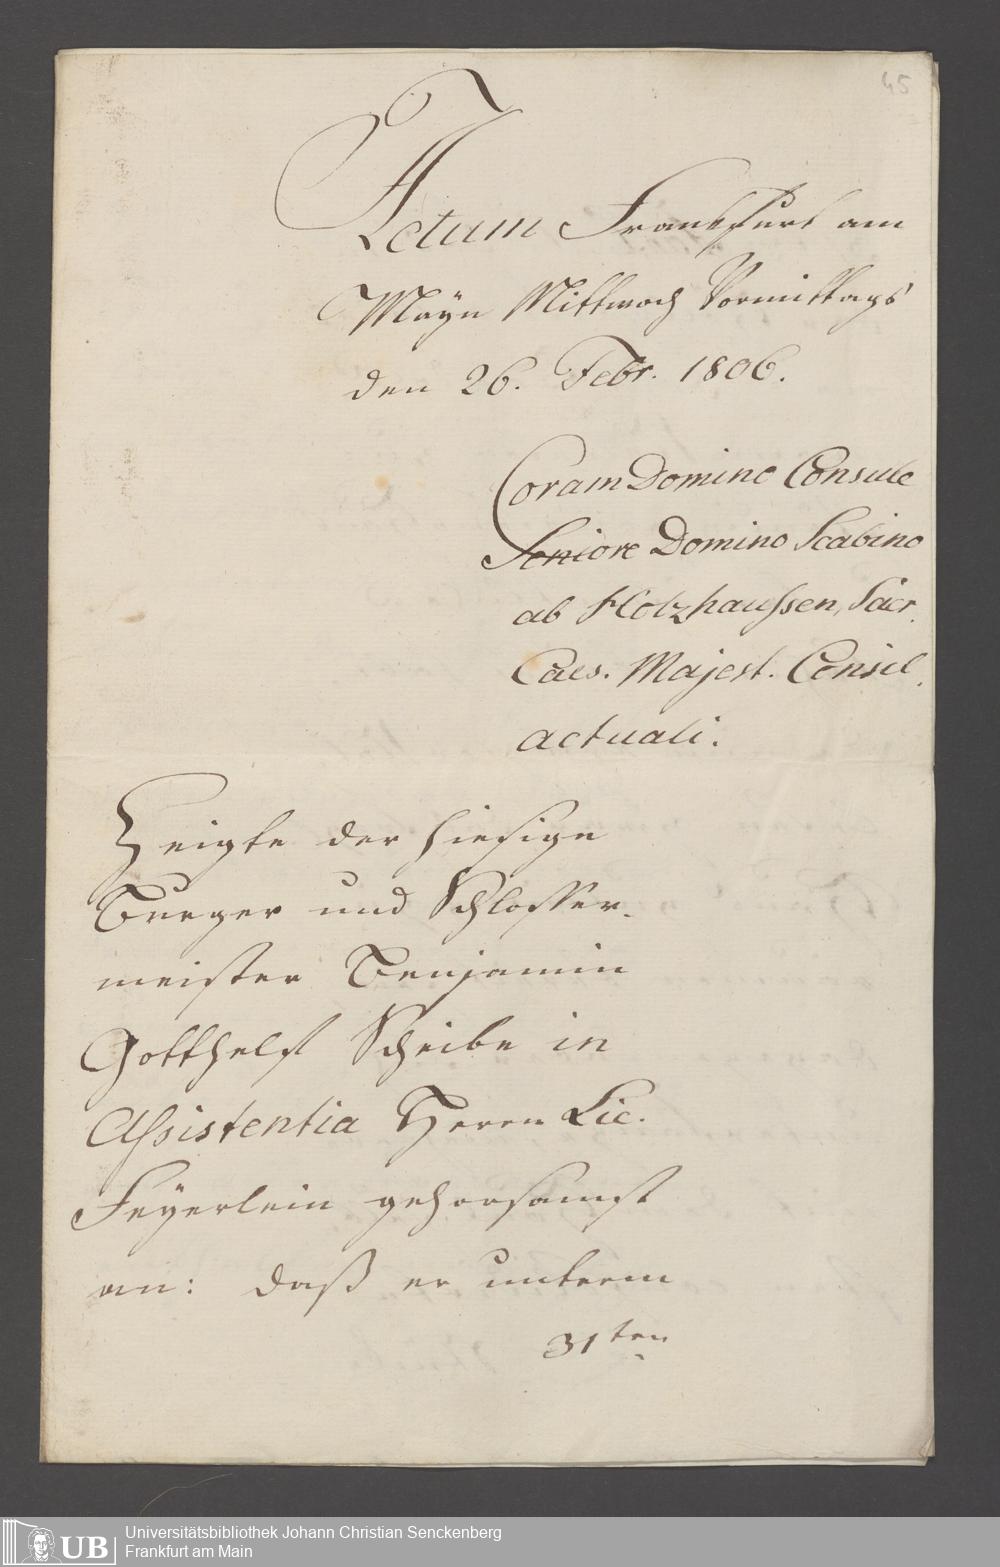 45
Actum Frankfurt am
Mayn Mittwoch Vormittags
den 26. Febr. 1806.
Coram Domino Consule
Seniore Domino Scabino
ab Holzhaussen, Sacr.
Caes. Majest. Consil.
actuali.
Zeigte der hiesige
Burger und Schlosser-
meister Benjamin
Gotthelf Scheibe in
Assistentia Herrn Lic.
Feyerlein gehorsamst
an: daß er unterm
31ten
UB
Universitätsbibliothek Johann Christian Senckenberg
Frankfurt am Main